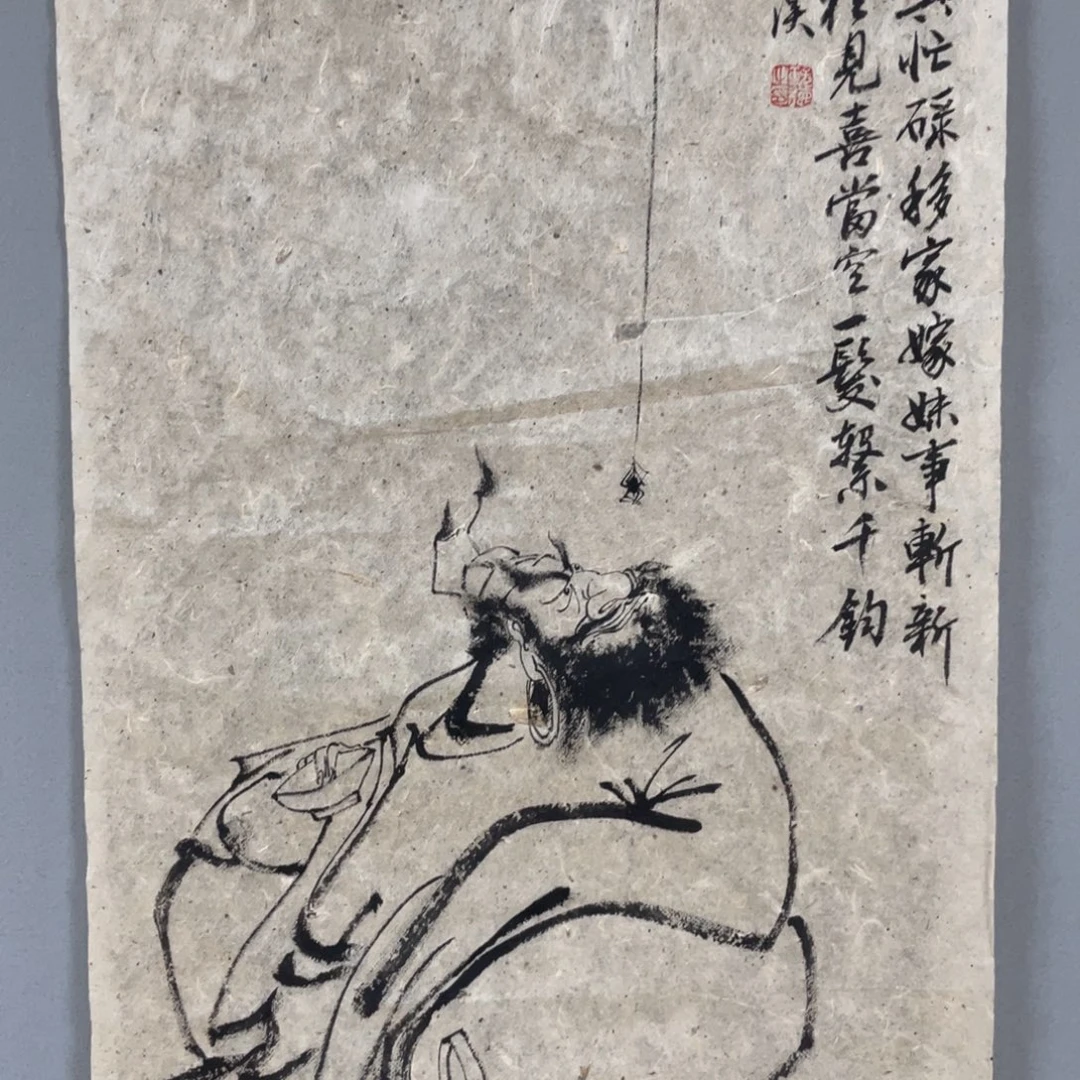 忙碌移家嫁妹事斬新
見喜當空一髮繫千鈞
溪